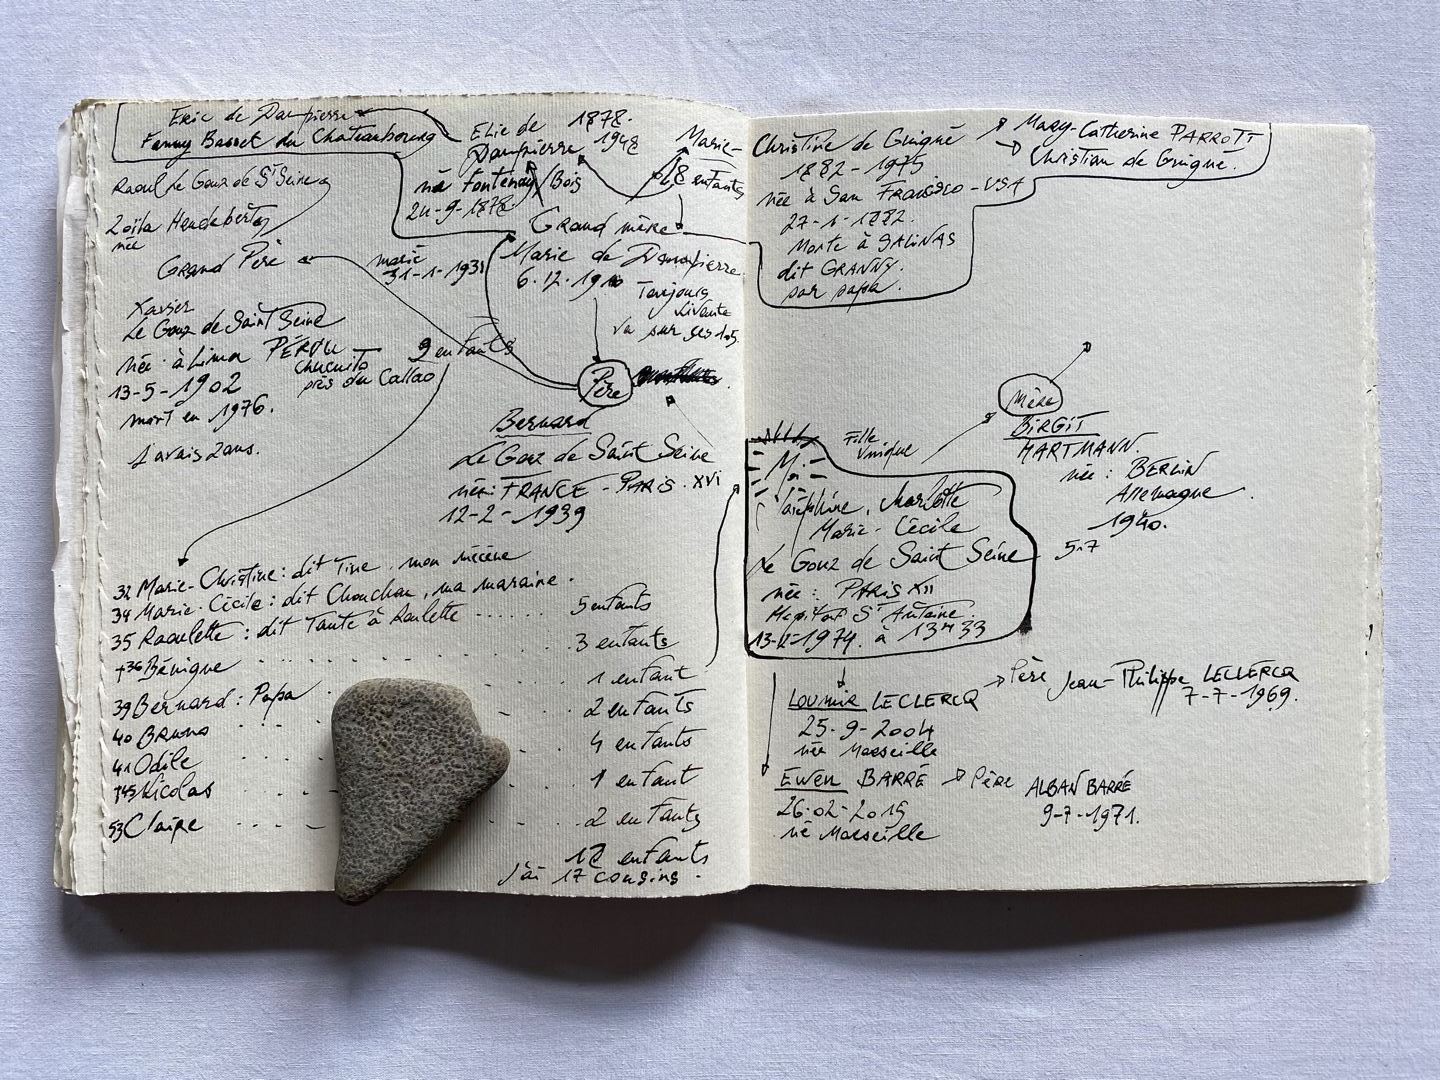 Eric de Dampierre
Fanny Basset du Chateaubourg
Raoul le Gouz de St Seine
Zoïla
née
Grand Père
Xavier
Le Gouz de Saint Seine
née à Lima PÉROU
Chucuito
près du Callao
13-5-1902
mort en 1976.
J'avais 2 ans.
Elie de 1878-
Dampierre 1948
né Fontenay/Bois
24-9-1878
Marie-
8 enfants
Grand mère
Marie de Dampierre
6.12.1910
Toujours
vivante
va sur ses 105.
marié
31-1-1931
9 enfants
Père
Bernard
Le Gouz de Saint Seine
née: FRANCE - PARIS XVI
12-2-1939
32 Marie-Christine: dit Tine, mon mécène
34 Marie-Cécile: dit Chouchou, ma maraine.
35 Raoulette: dit Tante à Roulette ..... 5 enfants
+36 Bénigne ..... 3 enfants
39 Bernard: Papa ..... 1 enfant
40 Bruno ..... 2 enfants
41 Odile ..... 4 enfants
+45 Nicolas ..... 1 enfant
53 Claire ..... 2 enfants
18 enfants
J'ai 17 cousins.
Christine de Guigné
1882-1975
née à San Francisco-USA
27-1-1882.
Morte à SALINAS
dit GRANNY.
par papa.
Mary-Catherine PARROTT
Christian de Guigne.
Mère
BIRGIT
HARTMANN.
née: BERLIN
Allemagne
1940.
5-7
Fille
unique
M.
Joséphine, Charlotte
Marie-Cécile
Le Gouz de Saint Seine
née: PARIS XII
Hopital St Antoine.
1974. à 13H33
LOUMIR LECLERCQ
25-9-2004
née Marseille
Père Jean-Philippe LECLERCQ
7-7-1969.
EWEN BARRÉ
26-02-2015
né Marseille
Père ALBAN BARRÉ
9-7-1971.